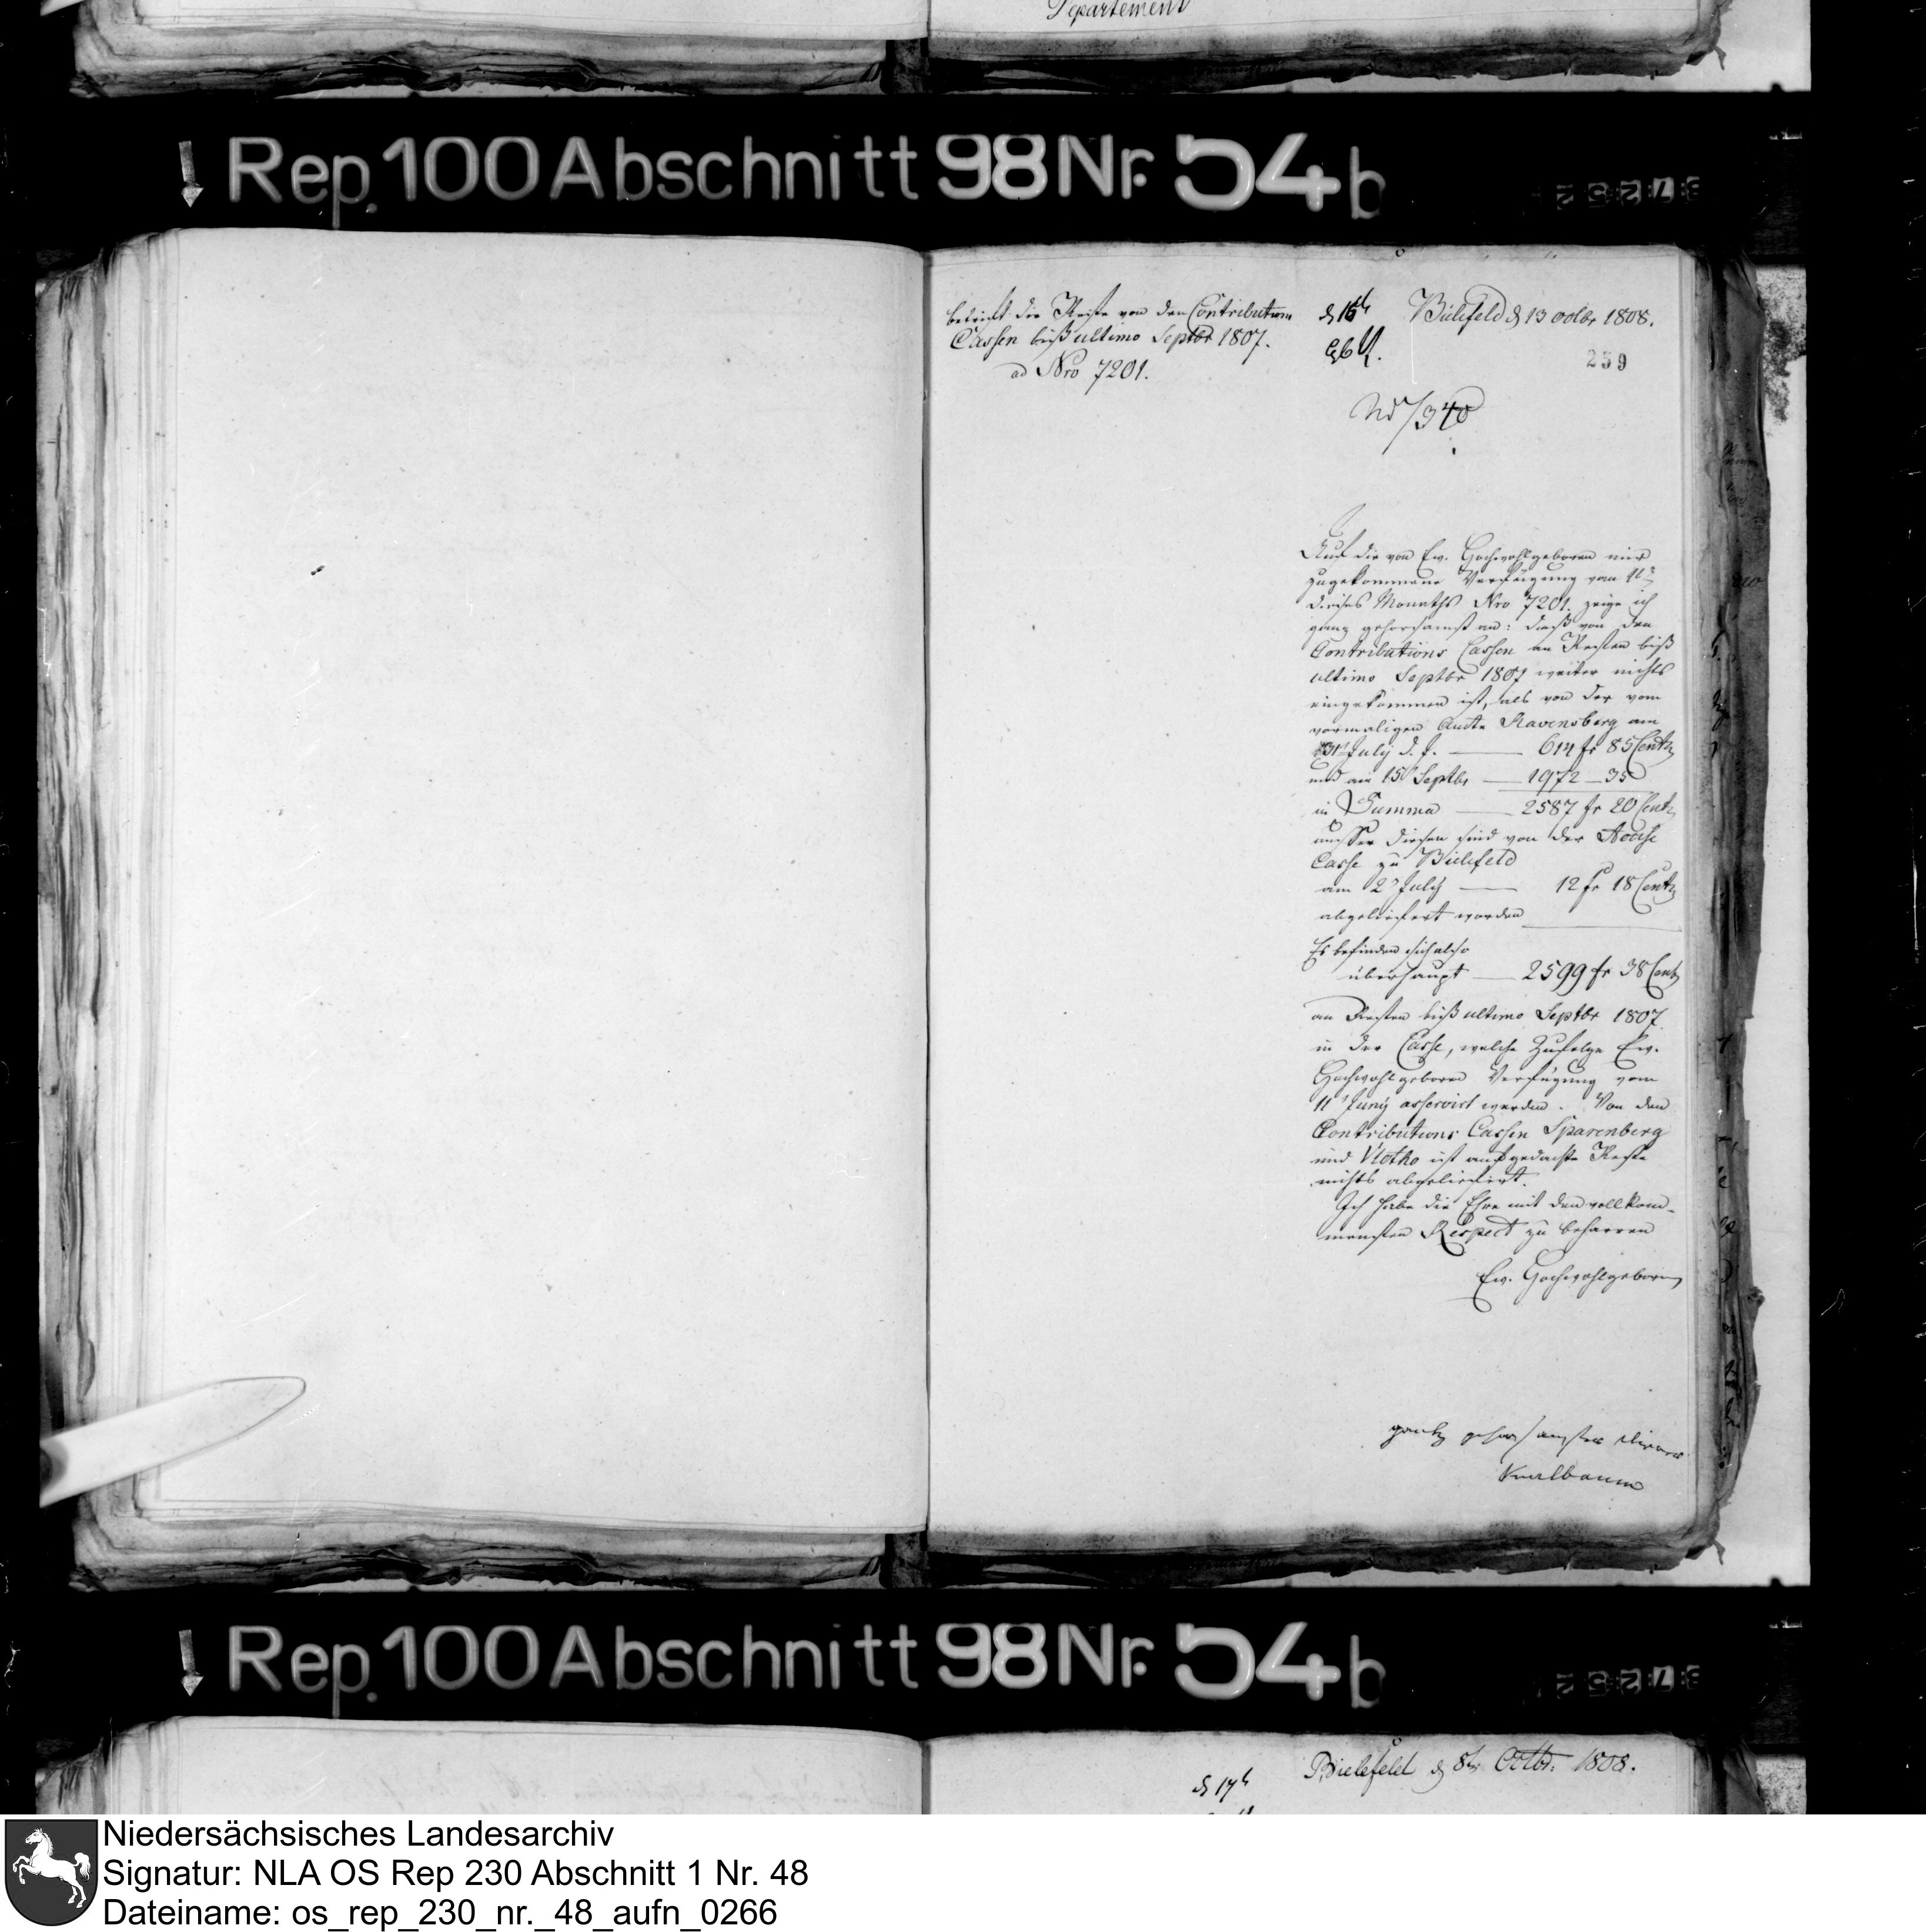 Departement
Rep. 100 Abschnitt 98 Nr. 54 b
betrift die Reste von den Contributions
Cassen biß ultimo Septbr 1807.
ad Nro 7201.
d 16t
Bielefeld d 13 octbr 1808.
259
No 7340
Auf die von Ew. Hochwohlgeboren mir
zugekommene Verfügung vom 11t
dieses Monaths Nro 7201. zeige ich
ganz gehorsamst an: daß von den
Contributions Cassen an Resten biß
ultimo Septbr 1807 weiter nichts
eingekommen ist, als von der vom
vormaligen Amte Ravensberg am
31t July d. J. — 614 fr 85 Cent
und am 15t Septbr — 1972 — 35
in Summa — 2587 fr 20 Cent
ausser diesen sind von der Accise
Casse zu Bielefeld
am 2t July — 12 fr 18 Cent
abgeliefert worden
Es befinden sich also
überhaupt — 2599 fr 38 Cent
an Resten biß ultimo Septbr 1807.
in der Casse, welche Zufolge Ew.
Hochwohlgeboren Verfügung vom
11t Juny asservirt werden. Von den
Contributions Cassen Sparenberg
und Vlotho ist auf gedachte Reste
nichts abgeliefert.
Ich habe die Ehre mit den vollkom-
mensten Respect zu beharren
Ew. Hochwohlgeboren
gantz gehorsamster Diener
Rep. 100 Abschnitt 98 Nr. 54 b
d 17t
Bielefeld d 8t Octbr. 1808.
Niedersächsisches Landesarchiv
Signatur: NLA OS Rep 230 Abschnitt 1 Nr. 48
Dateiname: os_rep_230_nr._48_aufn_0266